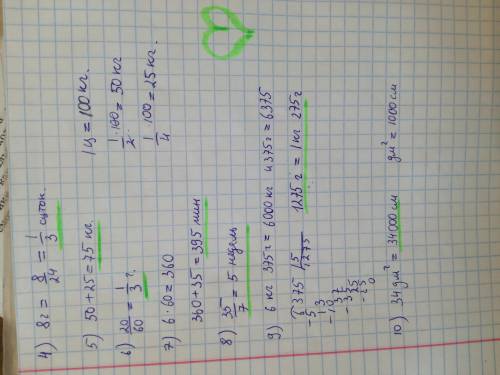 4) 8г = 8/24 = 1/3 суток
5) 50+25 = 75 кг
1ц = 100 кг.
1/2 · 100 = 50 кг
1/4 · 100 = 25 кг.
6) 20/60 = 1/3 г.
7) 6 · 60 = 360
360 + 35 = 395 мин
8) 35/7 = 5 недель
9) 6 кг 375 г = 6000 кг и 375 г = 6375
6375 | 5
-5 1275
13
-10
37
-35
25
-25
0
1275 г = 1 кг 275 г
10) 34 дм² = 34000 см
дм² = 1000 см